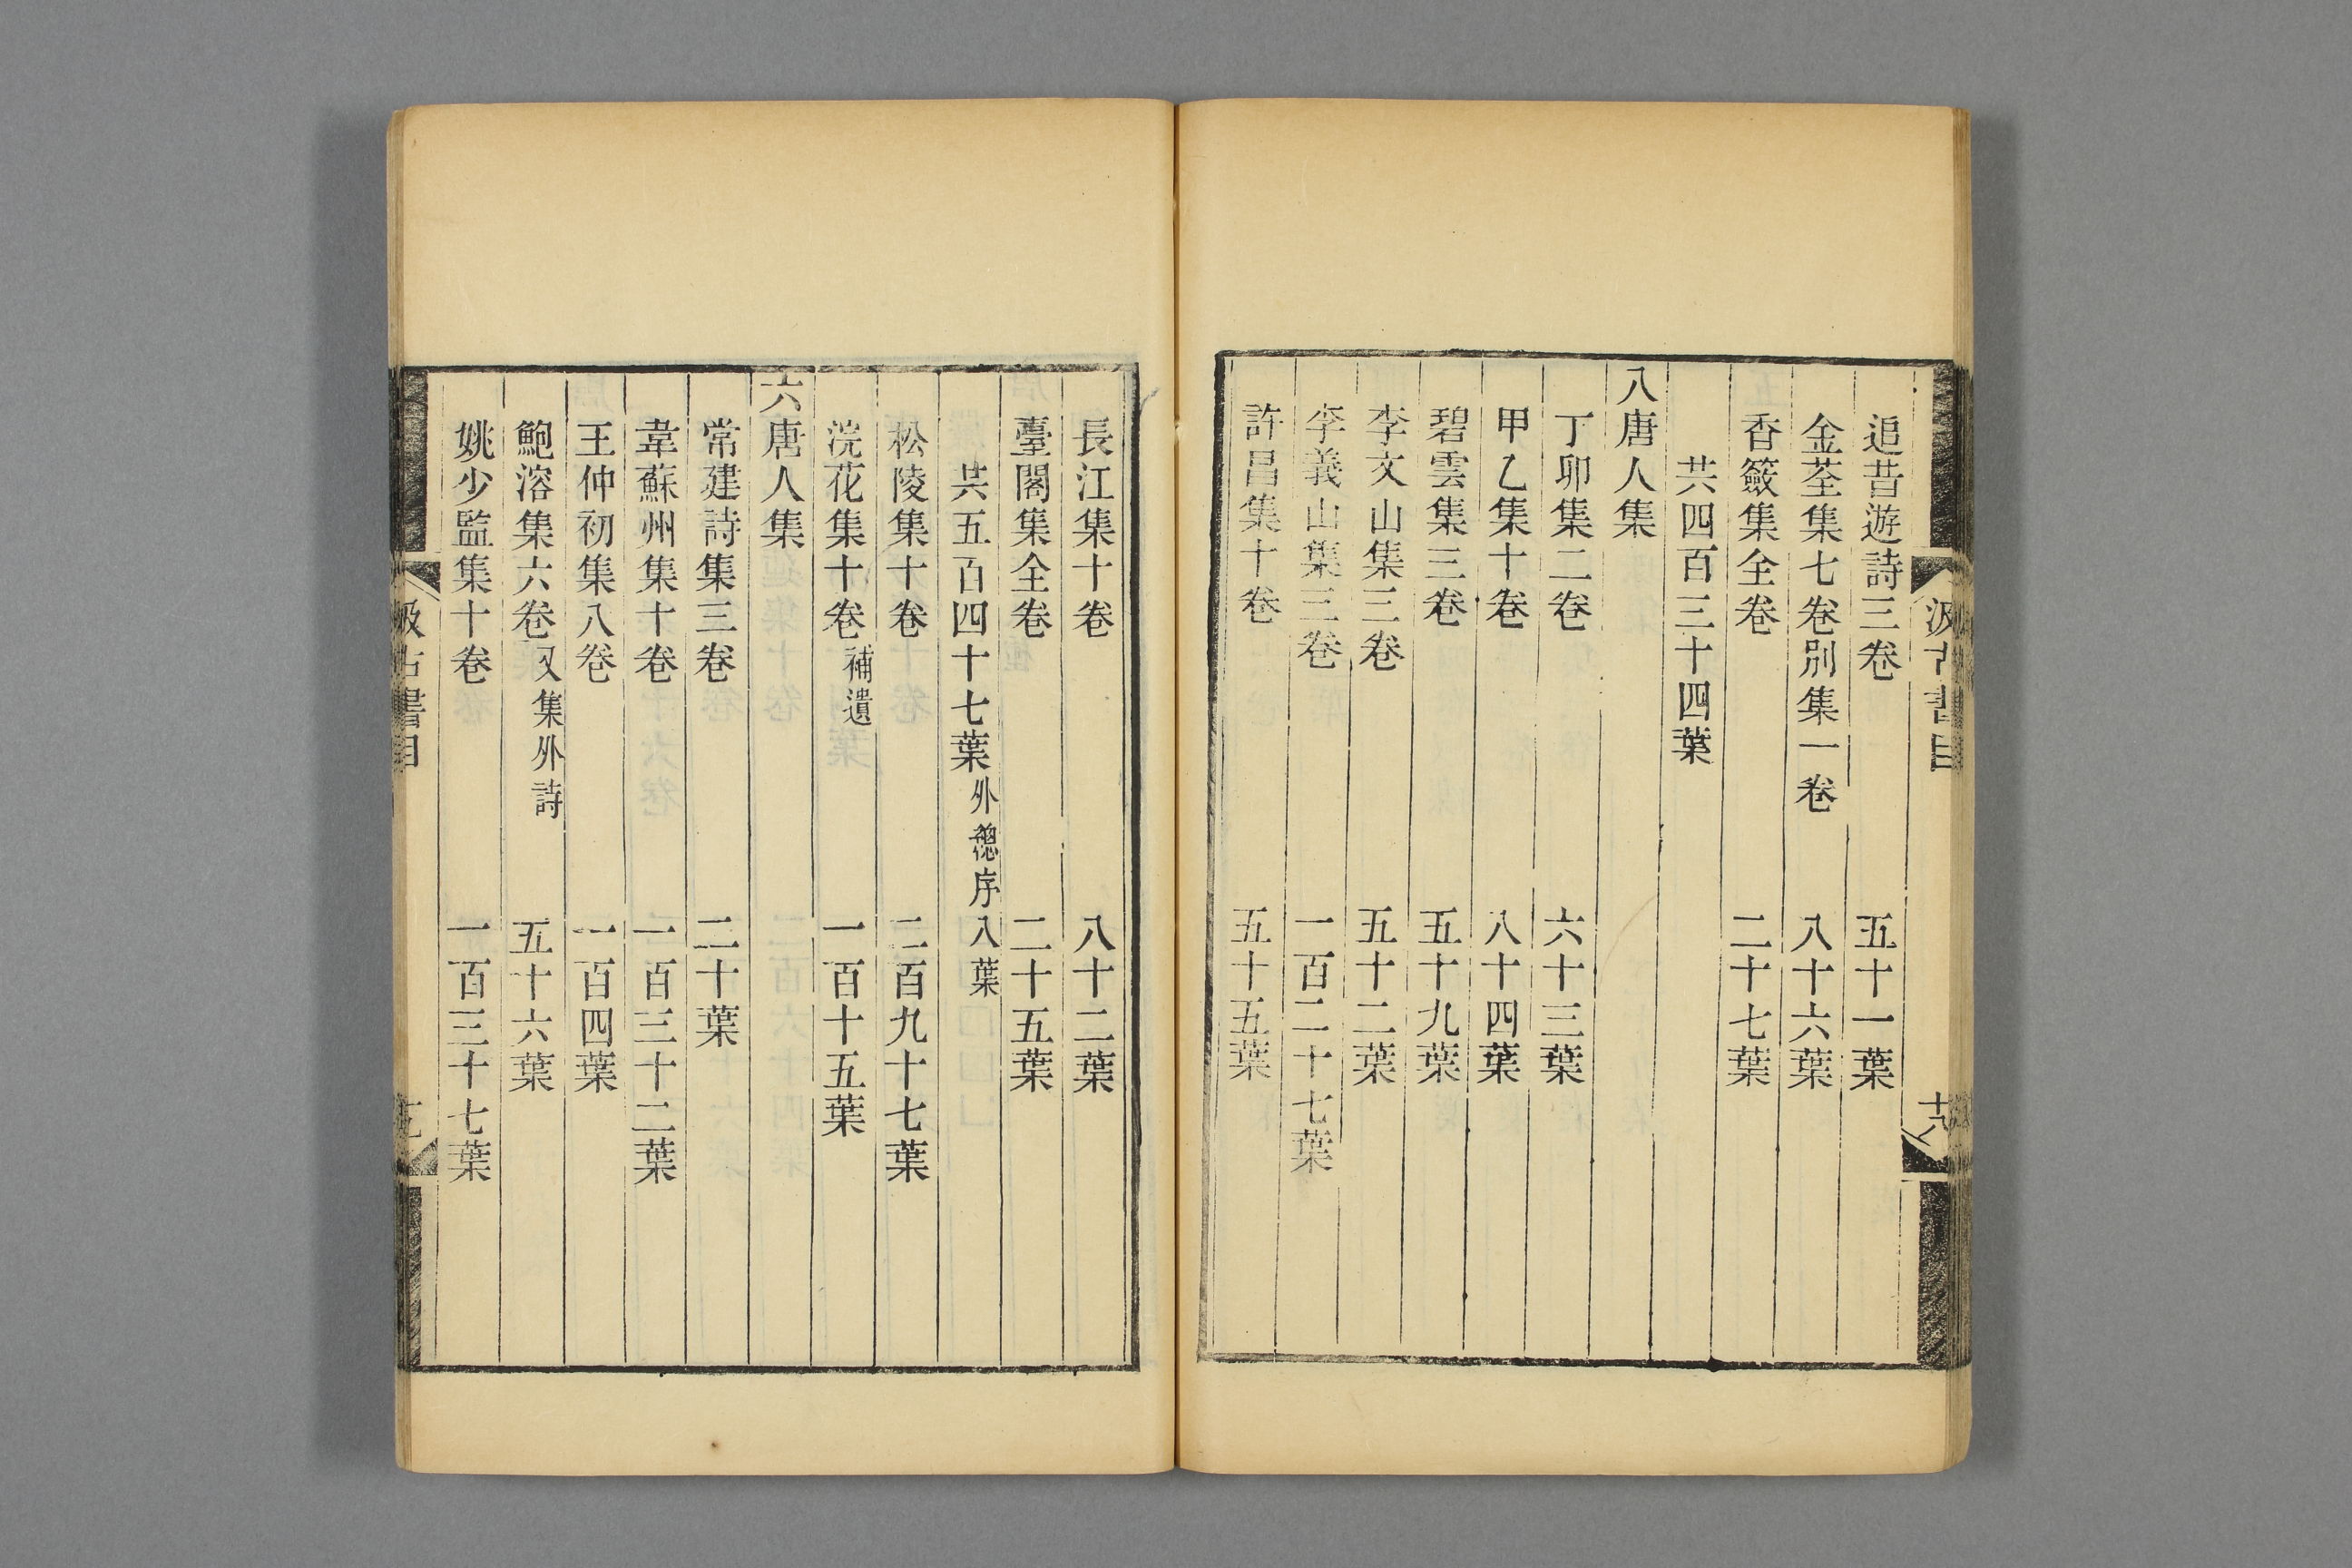 追昔遊詩三卷 五十一葉
金荃集七卷別集一卷 八十六葉
香籢集全卷 二十七葉
共四百三十四葉
八唐人集
丁卯集二卷 六十三葉
甲乙集十卷 八十四葉
碧雲集三卷 五十九葉
李文山集三卷 五十二葉
李義山集三卷 一百二十七葉
許昌集十卷 五十五葉
汲古書目 十八
長江集十卷 八十二葉
臺閣集全卷 二十五葉
共五百四十七葉外總序八葉
松陵集十卷 二百九十七葉
浣花集十卷補遺 一百十五葉
六唐人集
常建詩集三卷 二十葉
韋蘇州集十卷 一百三十二葉
王仲初集八卷 一百四葉
鮑溶集六卷又集外詩 五十六葉
姚少監集十卷 一百三十七葉
汲古書目